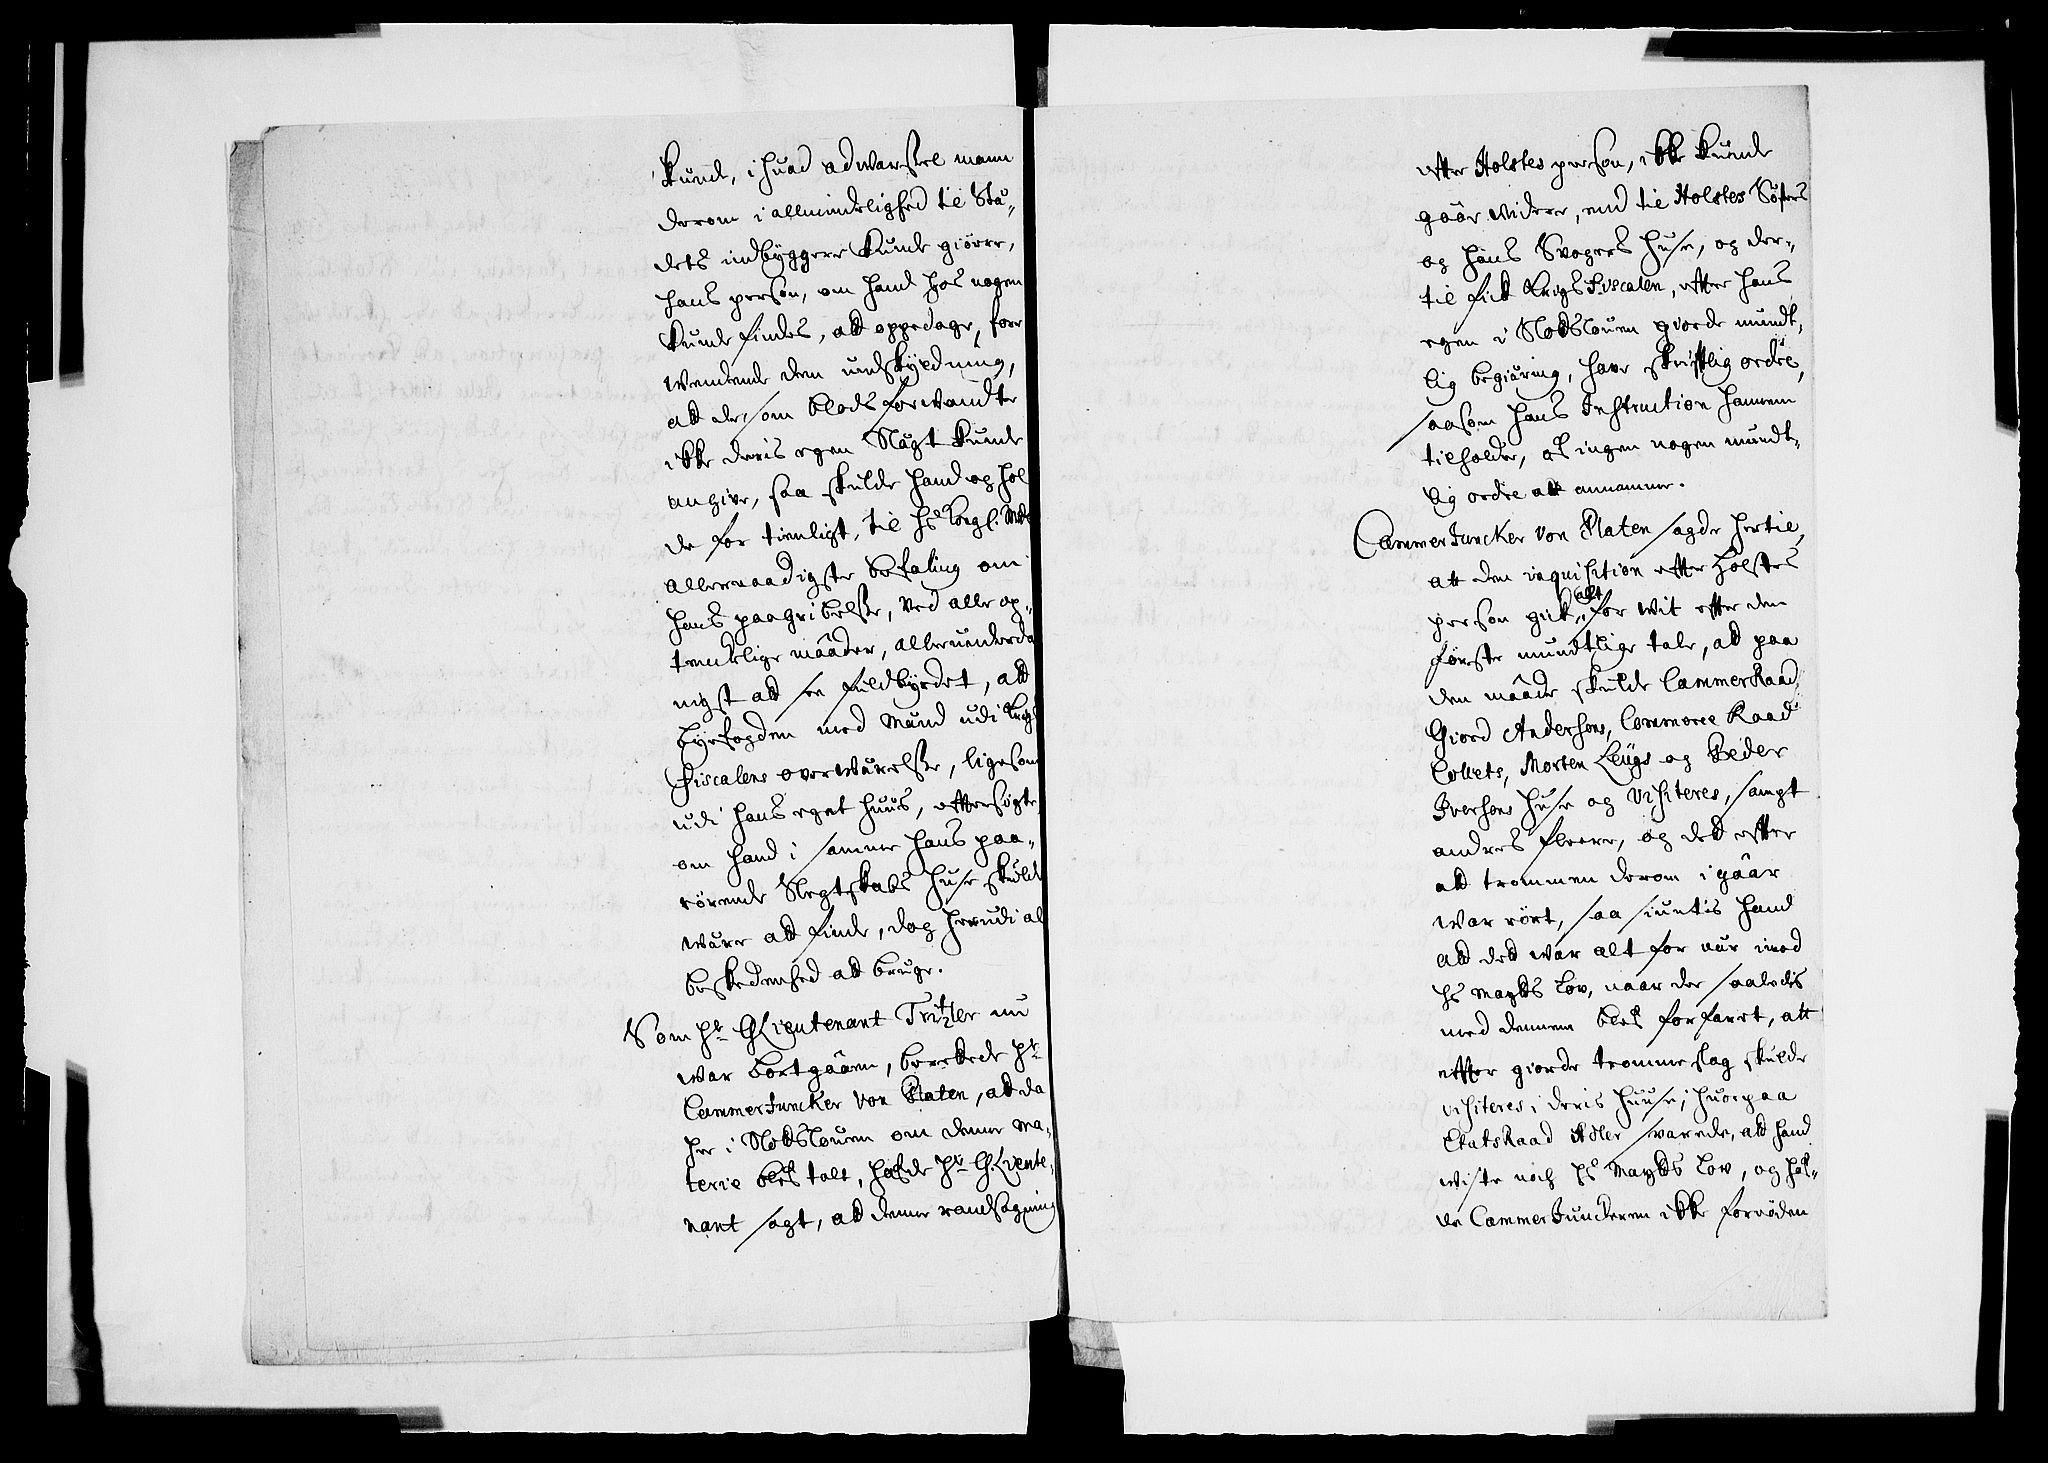 kunde, i huad adwarssel mann
derom i allmindelighed til Stæ„
dets indbyggere kunde giörre,
hans person, om hand hos nogen
kunde findes, att oppedage, fore
wendende den undskyldning,
att de som blods forwandte
ikke deris egen Slægt kunde
angive, saa skulde hand og hol
de for tienligt, til Hs Kongl. Mts
allernaadigste befaling om
hans paagribelsse, ved alle op„
tenckelige maader, allerunderda
nigst att see fuldbyrdet, att
byefogden med Mænd udi Krigs
Fiscalens overwærelsse, ligesom
udi hans eget huus, eftersögte,
om hand i samme hans paa„
rörende Slegtskabs huse skulde
wære att finde, dog herudi al
beskedenhed att bruge.
Som Hr. GLieutenant Tritzler nu
war bortgaaen, berettede Hr.
CammerJuncker von Platen, att da
her i Slotzlouen om denne ma„
terie blef talt, hafde Hr. GLieute„
nant sagt, att denne randsagning
efter Holstes person, ikke kunde
gaar videre, end til Holstes Söfters
og hans Svogers huse, og der„
til fick KrigsFiscalen, efter hans
egen i Slotzlouen giorde mundt„
lig begiæring, have skriftlig ordre,
saasom hans Instruction hannem
tilholder, af ingen nogen mundt„
lig ordre att annamme.
CammerJuncker von Platen sagde hertil,
att den inquisition efter Holstes
person gick allt for wit efter den
förste mundtlige tale, att paa
den maade skulde CammerRaad
Giord Andersens, Commerce Raad
Collets, Morten Leügs og Peder
Iversens huse og visiteres, sampt
andres fleere, og det efter
att trommen derom i gaar
war rört, saa siuntis hand
att det war alt for nær imod
Hs Mayts Lov, naar der saaledis
med dennem blef forfaret, att
efter giorde trommeslag skulde
visiteres i deris huuse, huorpaa
EtatsRaad Adler svarede, att hand
wiste noch Hs Mayts Lov, og haf„
de CammerJunckeren ikke fornöden